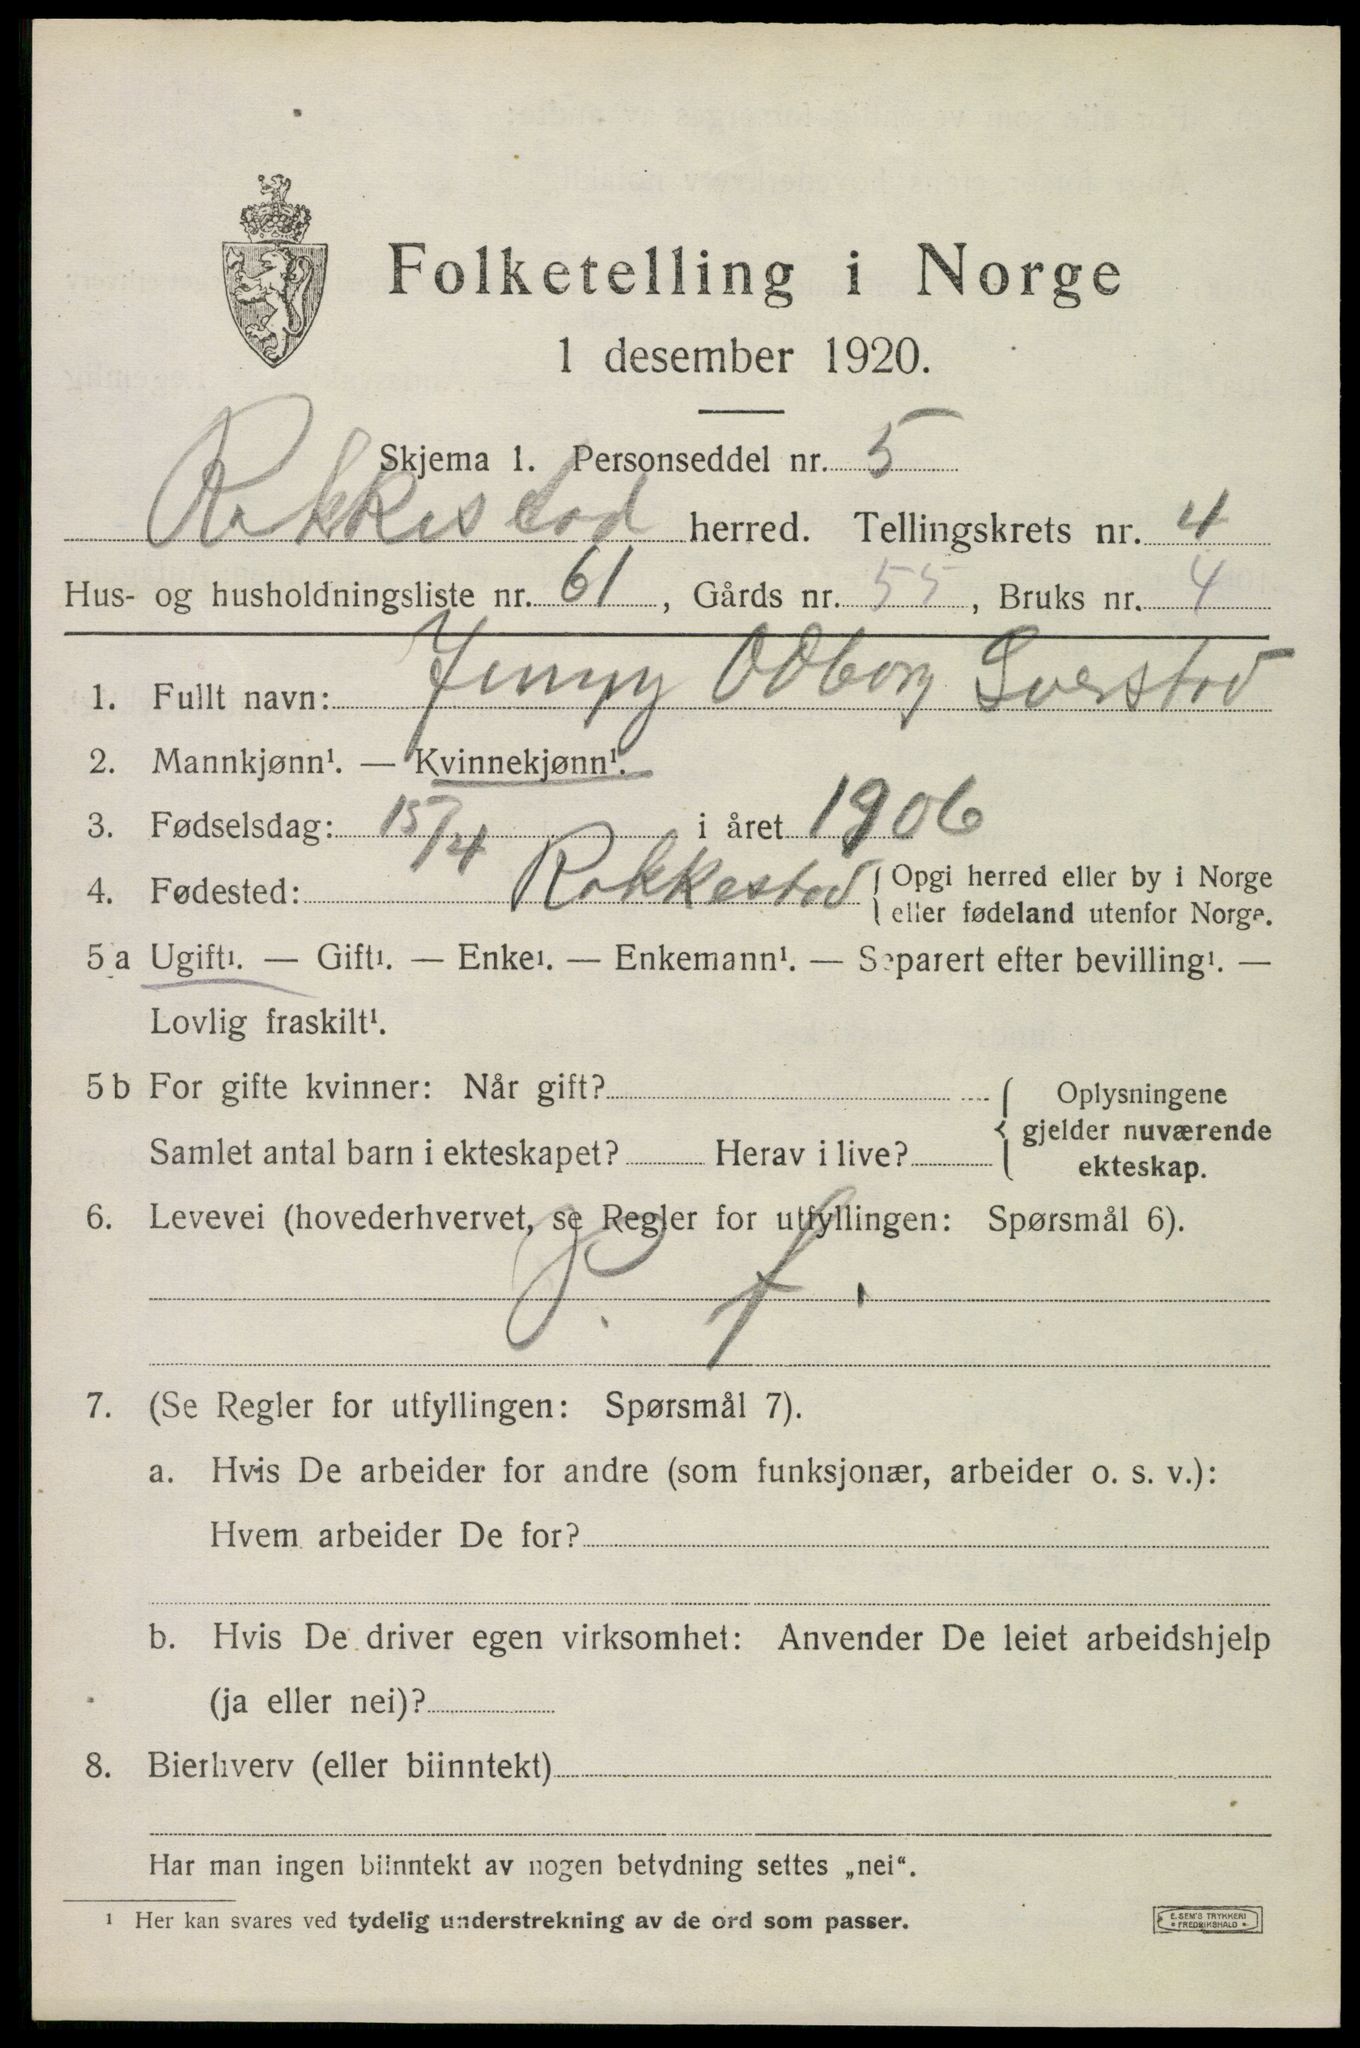 Folketelling i Norge
1 desember 1920.
Skjema 1. Personseddel nr. 5
Rakkestad herred. Tellingskrets nr. 4
Hus- og husholdningsliste nr. 61, Gårds nr. 55, Bruks nr. 4
1. Fullt navn: Jenny Odborg Sverstad
2. Mannkjønn¹. — Kvinnekjønn¹.
3. Fødselsdag: 15/4 i året 1906
4. Fødested: Rakkestad { Opgi herred eller by i Norge
eller fødeland utenfor Norge.
5 a Ugift¹. — Gift¹. — Enke¹. — Enkemann¹. — Separert efter bevilling¹. —
Lovlig fraskilt¹.
5 b For gifte kvinner: Når gift?
Samlet antal barn i ekteskapet? Herav i live?
{ Oplysningene
gjelder nuværende
ekteskap.
6. Levevei (hovederhvervet, se Regler for utfyllingen: Spørsmål 6).
7. (Se Regler for utfyllingen: Spørsmål 7).
a. Hvis De arbeider for andre (som funksjonær, arbeider o. s. v.):
Hvem arbeider De for?
b. Hvis De driver egen virksomhet: Anvender De leiet arbeidshjelp
(ja eller nei)?
8. Bierhverv (eller biinntekt)
Har man ingen biinntekt av nogen betydning settes „nei“.
¹ Her kan svares ved tydelig understrekning av de ord som passer.
E. SEM'S TRYKKERI
FREDRIKSHALD